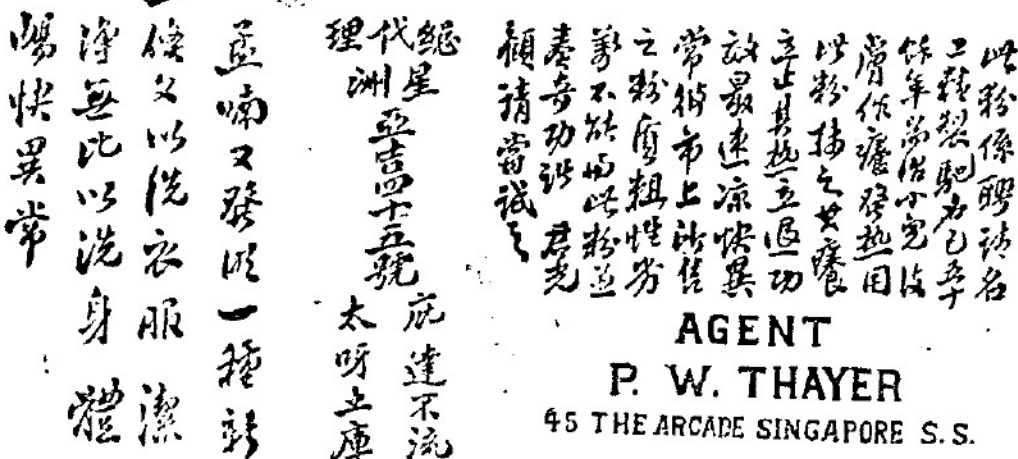 此粉係聘請名
工精製馳名已五十
餘年專治小兒皮
膚作癢發熱用
此粉抹之其癢
立止其熱立退功
效最速凉快異
常彼市上所售
之粉質粗性劣
萬不能與此粉並
奏奇功諸 君光
顧請嘗試之
AGENT
P. W. THAYER
45 THE ARCADE SINGAPORE S. S.
總代理
星洲
亞吉四十五號
庇達不流
太呀土庫
孟喃又發明一種新
文以洗衣服潔
淨無比以洗身體
暢快異常